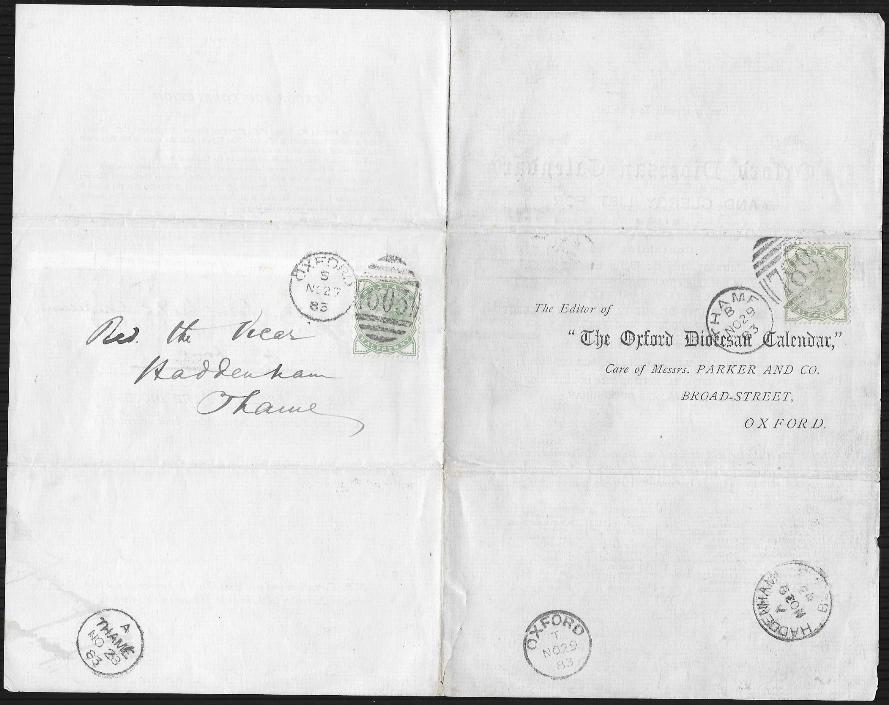 OXFORD
S
NO 29
83
603
Rev. the Vicar
Haddenham
Thame
A
THAME
NO 29
83
789
THAME
B
NO 29
83
The Editor of
"The Oxford Diocesan Calendar,"
Care of Messrs. PARKER AND CO.
BROAD-STREET,
OXFORD.
OXFORD
T
NO 29
83
HADDENHAM
A
NO 29